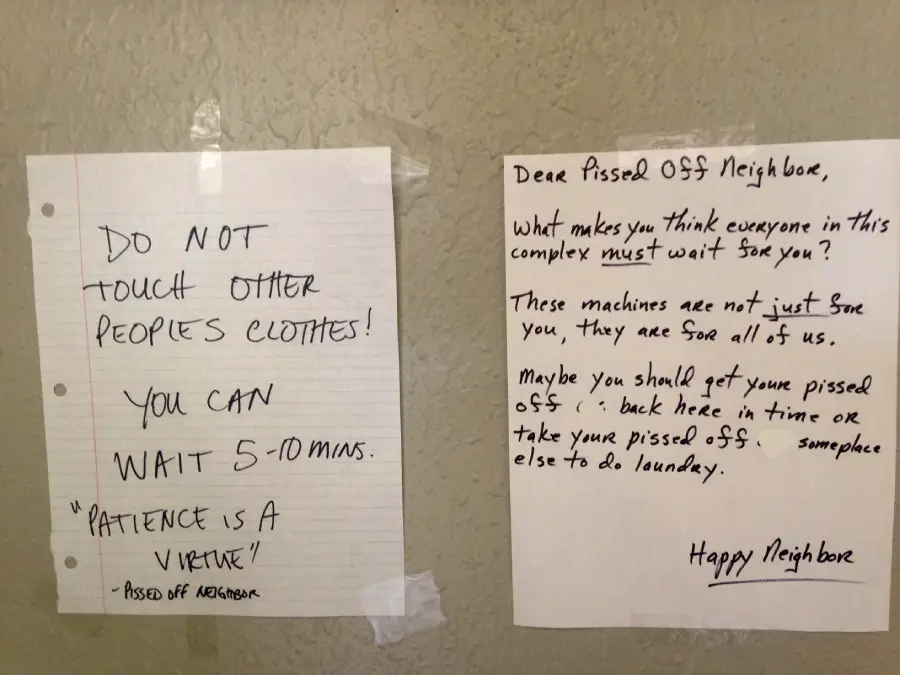 DO NOT
TOUCH OTHER
PEOPLES CLOTHES!
YOU CAN
WAIT 5-10 MINS.
"PATIENCE IS A
VIRTUE"
- PISSED OFF NEIGHBOR
Dear Pissed Off Neighbor,
What makes you think everyone in this
complex must wait for you?
These machines are not just for
you, they are for all of us.
Maybe you should get your pissed
off back here in time or
take your pissed off someplace
else to do laundry.
Happy Neighbor